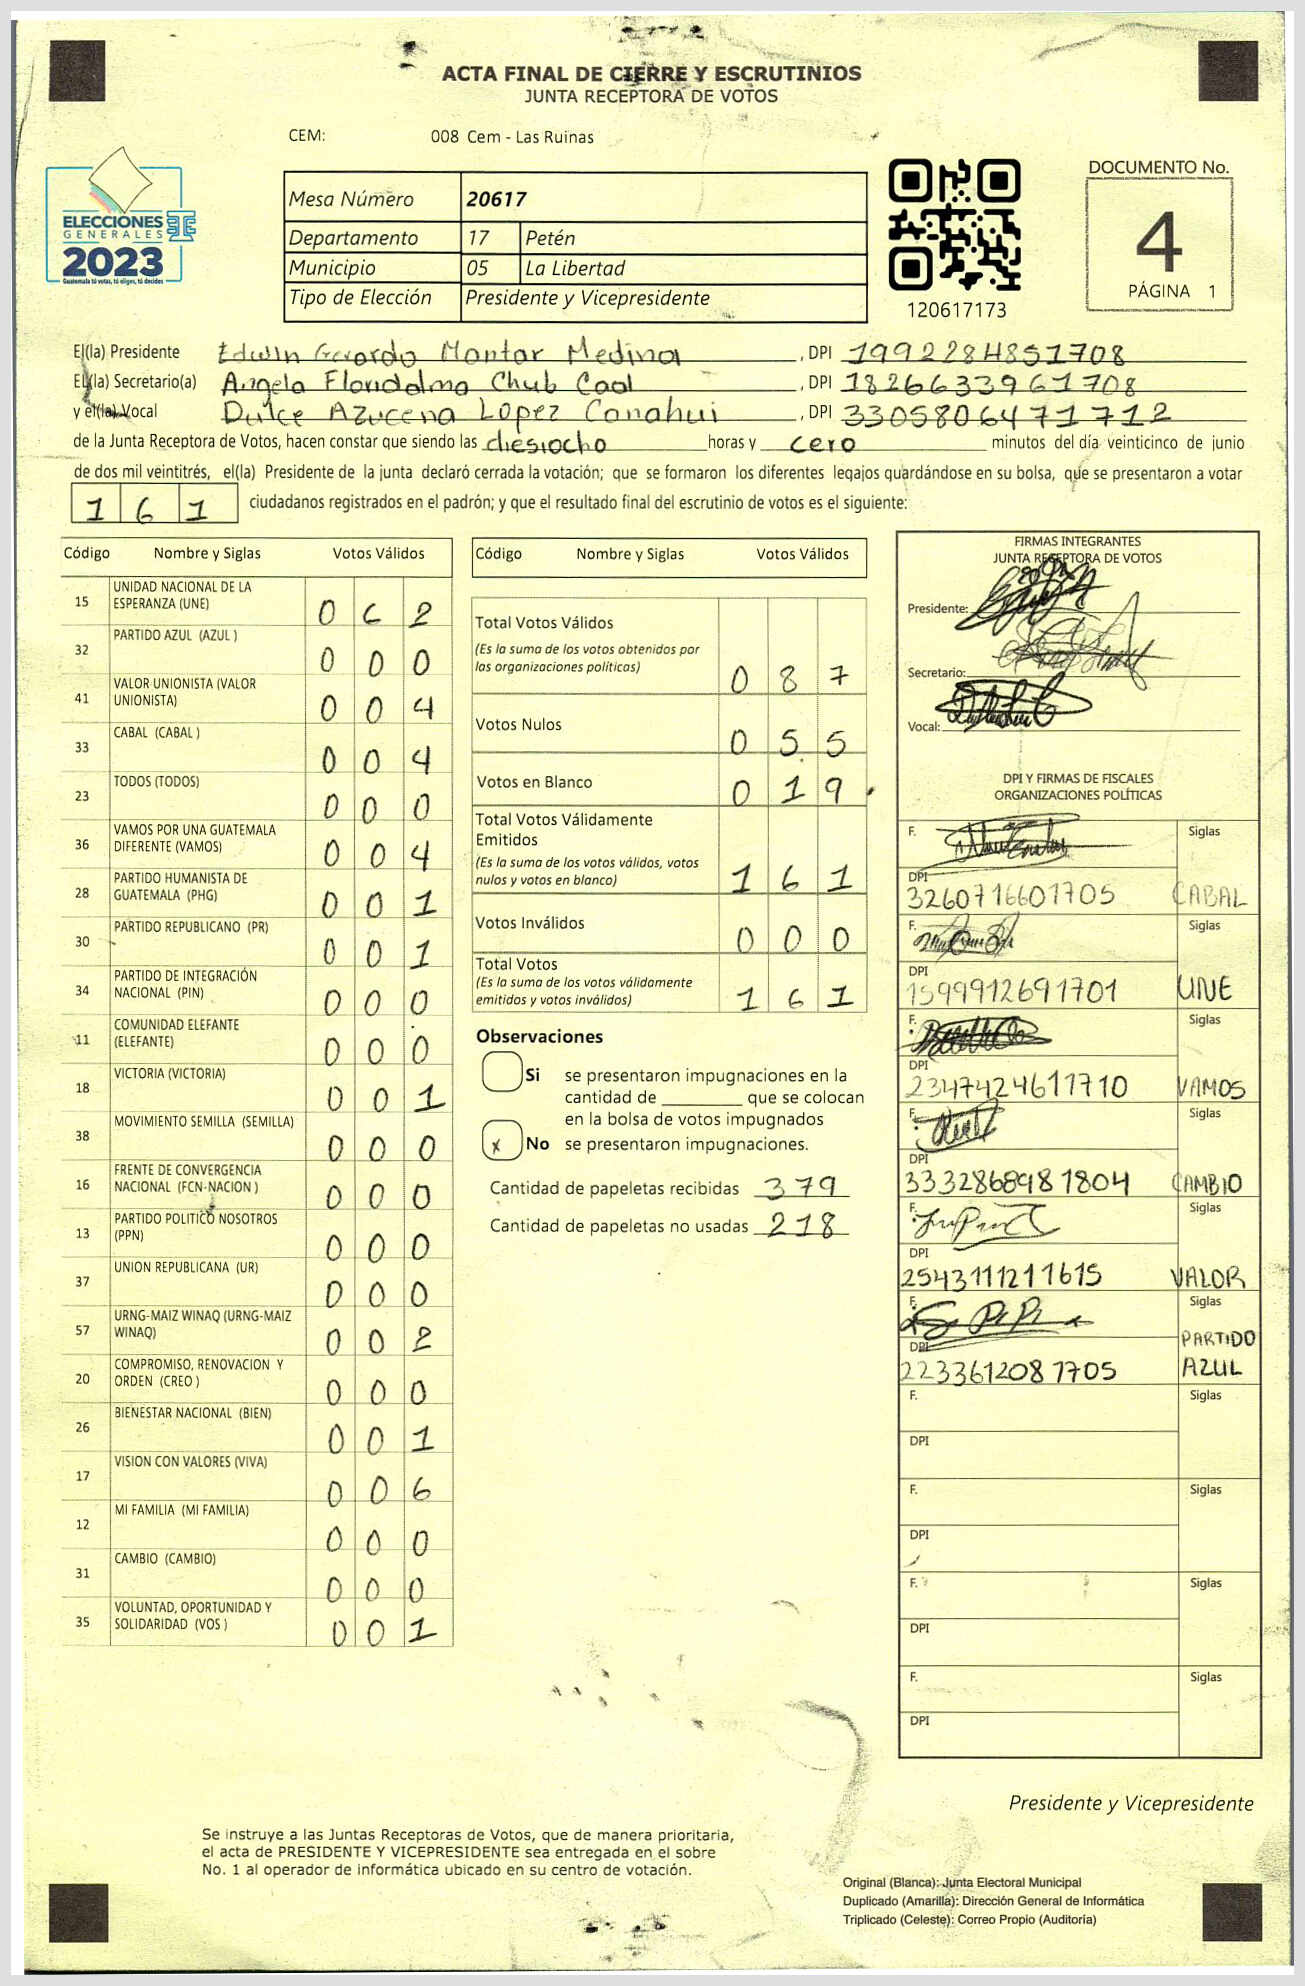 ACTA FINAL DE CIERRE Y ESCRUTINIOS
JUNTA RECEPTORA DE VOTOS
CEM: 008 Cem - Las Ruinas
ELECCIONES
GENERALES
2023
Guatemala tú votas, tú eliges, tú decides
Mesa Número 20617
Departamento 17 Petén
Municipio 05 La Libertad
Tipo de Elección Presidente y Vicepresidente
120617173
DOCUMENTO No.
4
PÁGINA 1
El(la) Presidente Edwin Gerardo Montar Medina, DPI 1992284851708
El(la) Secretario(a) Angela Floridalma Chub Caal, DPI 1826633961708
y el(la) Vocal Dulce Azucena Lopez Canahui, DPI 3305806471712
de la Junta Receptora de Votos, hacen constar que siendo las diesiocho horas y cero minutos del día veinticinco de junio
de dos mil veintitrés, el(la) Presidente de la junta declaró cerrada la votación; que se formaron los diferentes legajos quardándose en su bolsa, que se presentaron a votar
161 ciudadanos registrados en el padrón; y que el resultado final del escrutinio de votos es el siguiente:
Código Nombre y Siglas Votos Válidos
15 UNIDAD NACIONAL DE LA ESPERANZA (UNE) 062
32 PARTIDO AZUL (AZUL ) 000
41 VALOR UNIONISTA (VALOR UNIONISTA) 004
33 CABAL (CABAL ) 004
23 TODOS (TODOS) 000
36 VAMOS POR UNA GUATEMALA DIFERENTE (VAMOS) 004
28 PARTIDO HUMANISTA DE GUATEMALA (PHG) 001
30 PARTIDO REPUBLICANO (PR) 001
34 PARTIDO DE INTEGRACIÓN NACIONAL (PIN) 000
11 COMUNIDAD ELEFANTE (ELEFANTE) 000
18 VICTORIA (VICTORIA) 001
38 MOVIMIENTO SEMILLA (SEMILLA) 000
16 FRENTE DE CONVERGENCIA NACIONAL (FCN-NACION ) 000
13 PARTIDO POLITICO NOSOTROS (PPN) 000
37 UNION REPUBLICANA (UR) 000
57 URNG-MAIZ WINAQ (URNG-MAIZ WINAQ) 002
20 COMPROMISO, RENOVACION Y ORDEN (CREO ) 000
26 BIENESTAR NACIONAL (BIEN) 001
17 VISION CON VALORES (VIVA) 006
12 MI FAMILIA (MI FAMILIA) 000
31 CAMBIO (CAMBIO) 000
35 VOLUNTAD, OPORTUNIDAD Y SOLIDARIDAD (VOS ) 001
Código Nombre y Siglas Votos Válidos
Total Votos Válidos
(Es la suma de los votos obtenidos por
las organizaciones políticas) 087
Votos Nulos 055
Votos en Blanco 019
Total Votos Válidamente
Emitidos
(Es la suma de los votos válidos, votos
nulos y votos en blanco) 161
Votos Inválidos 000
Total Votos
(Es la suma de los votos válidamente
emitidos y votos inválidos) 161
Observaciones
Si se presentaron impugnaciones en la
cantidad de ________ que se colocan
en la bolsa de votos impugnados
x No se presentaron impugnaciones.
Cantidad de papeletas recibidas 379
Cantidad de papeletas no usadas 218
FIRMAS INTEGRANTES
JUNTA RECEPTORA DE VOTOS
Presidente:
Secretario:
Vocal:
DPI Y FIRMAS DE FISCALES
ORGANIZACIONES POLÍTICAS
F. Siglas
DPI
3260716601705 CABAL
F. Siglas
DPI
1599912691701 UNE
F. Siglas
DPI
2347424611710 VAMOS
F. Siglas
DPI
3332868981804 CAMBIO
F. Siglas
DPI
2543111211615 VALOR
F. Siglas
DPI
2233612081705 PARTIDO AZUL
F. Siglas
DPI
F. Siglas
DPI
F. Siglas
DPI
F. Siglas
DPI
Presidente y Vicepresidente
Se instruye a las Juntas Receptoras de Votos, que de manera prioritaria,
el acta de PRESIDENTE Y VICEPRESIDENTE sea entregada en el sobre
No. 1 al operador de informática ubicado en su centro de votación.
Original (Blanca): Junta Electoral Municipal
Duplicado (Amarilla): Dirección General de Informática
Triplicado (Celeste): Correo Propio (Auditoría)